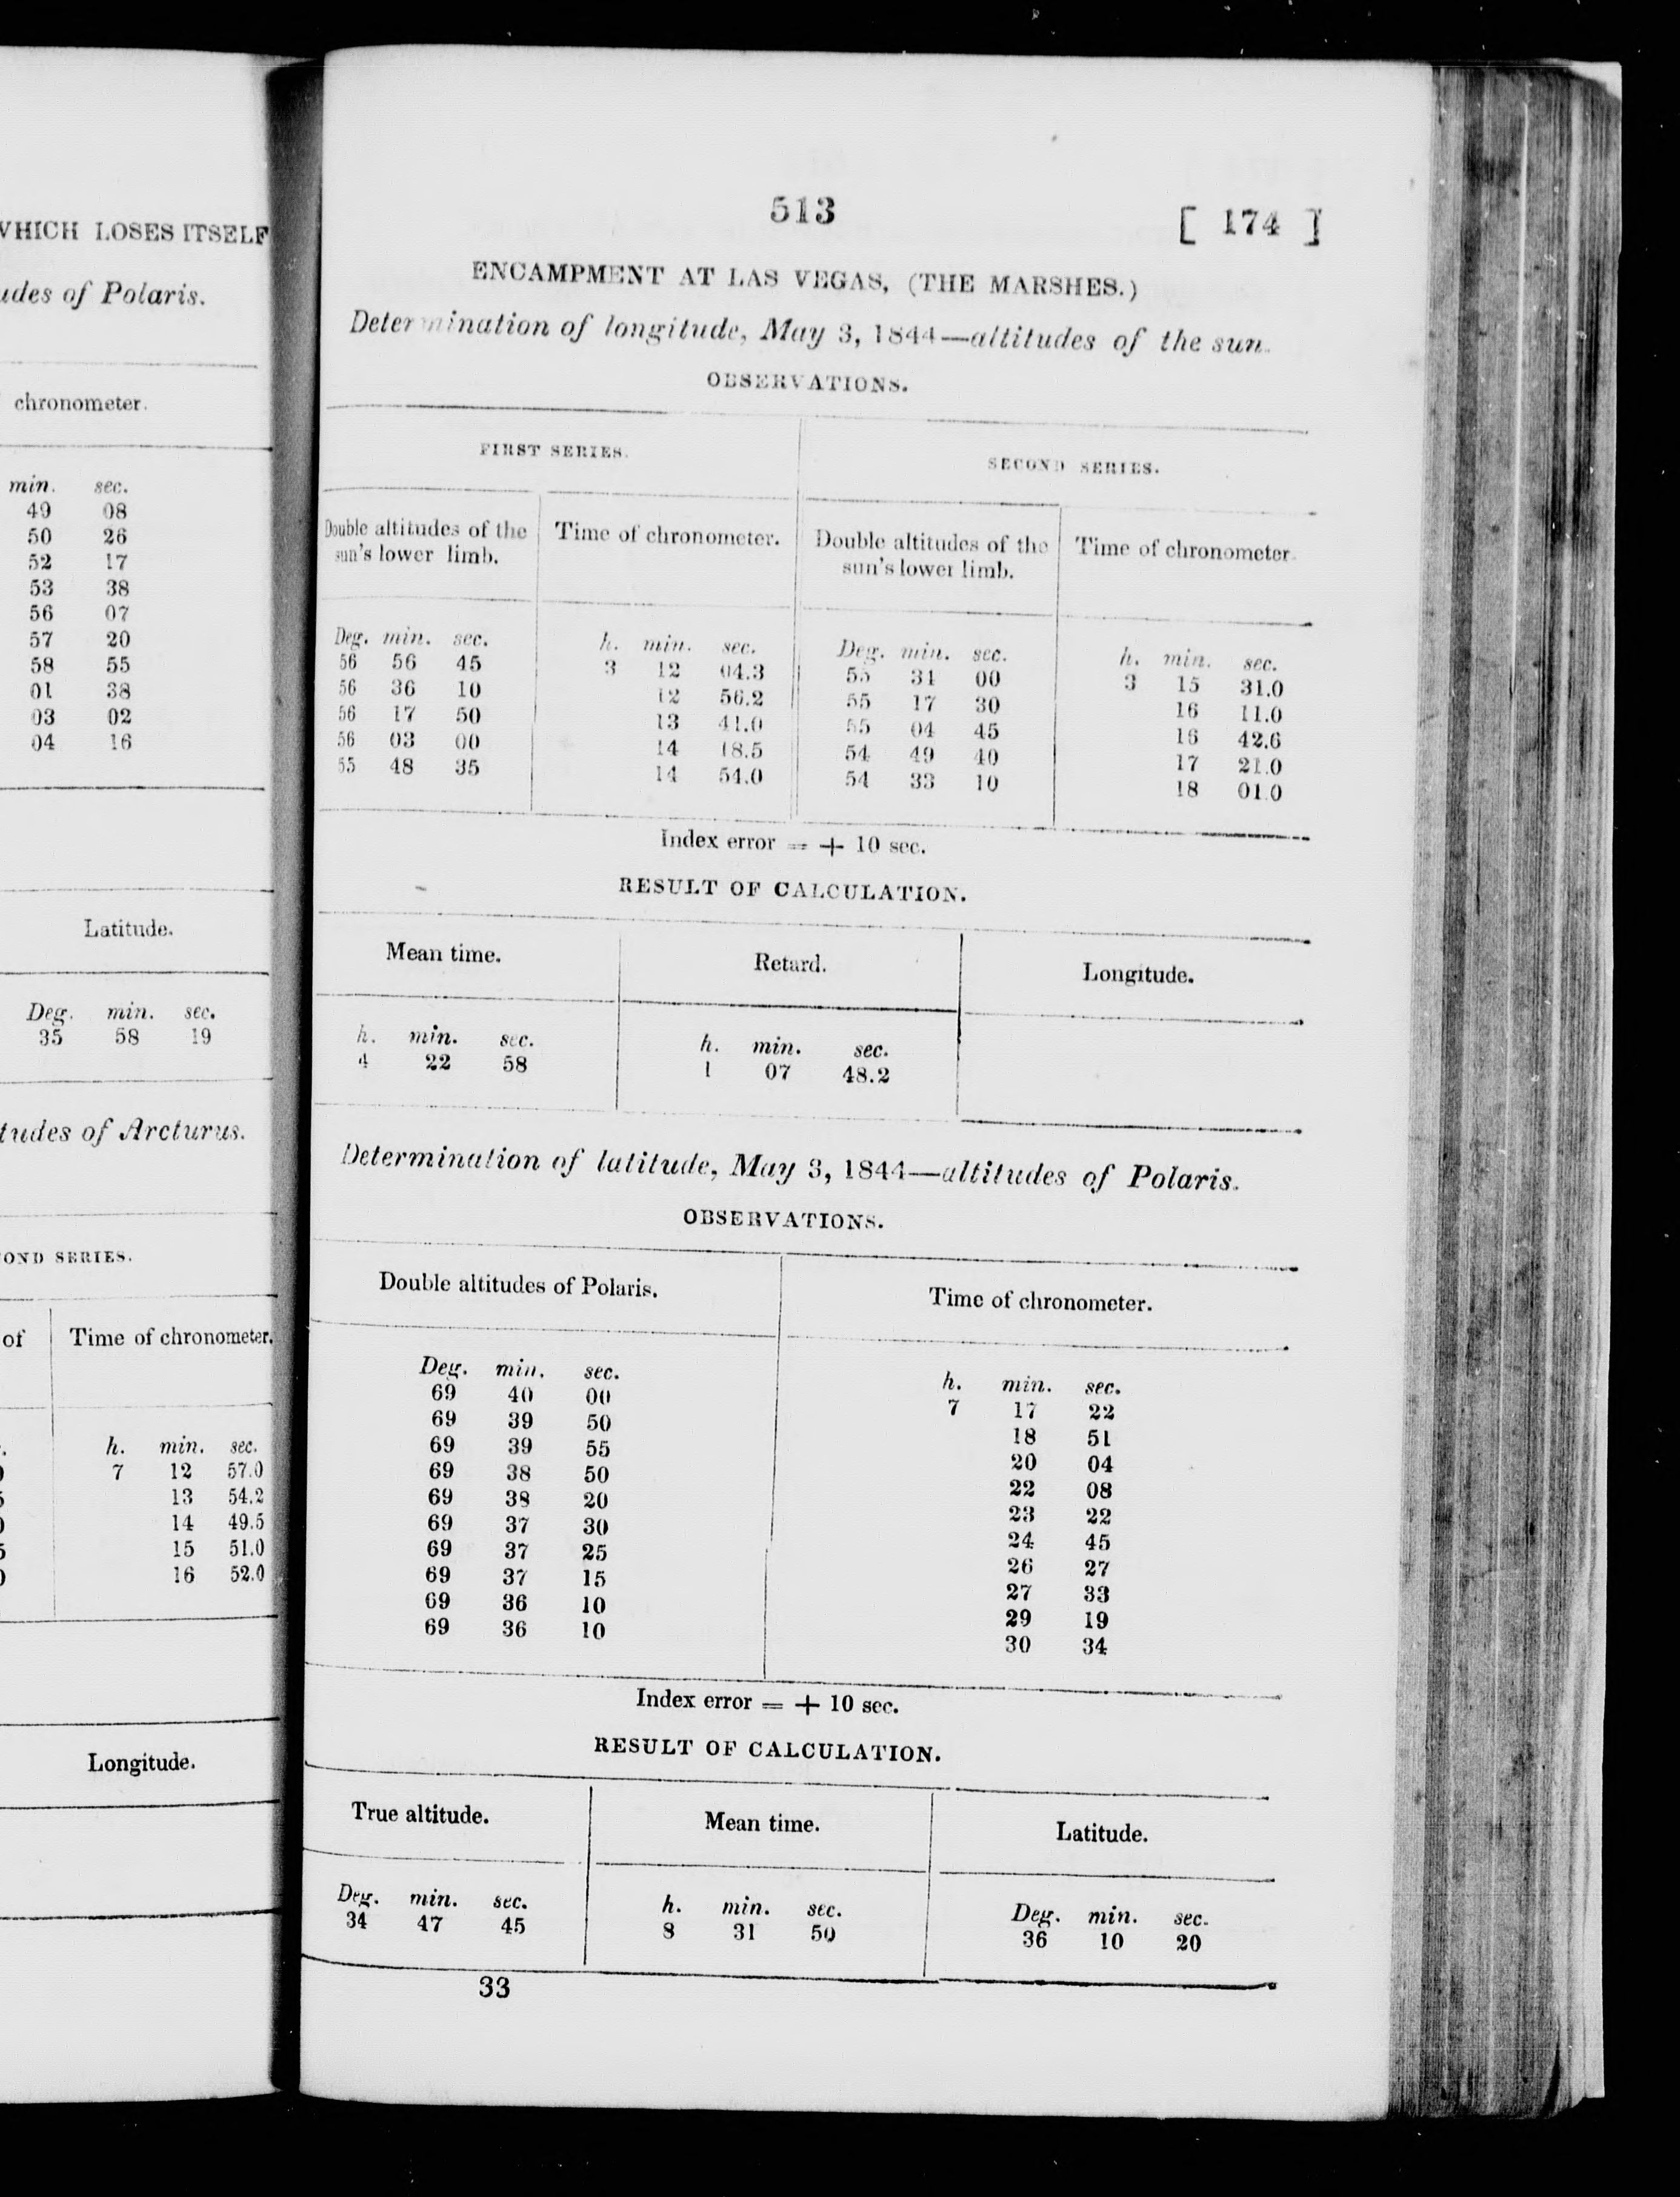 WHICH LOSES ITSELF
udes of Polaris.
chronometer.
min. sec.
49 08
50 26
52 17
53 38
56 07
57 20
58 55
01 38
03 02
04 16
Latitude.
Deg. min. sec.
35 58 19
tudes of Arcturus.
OND SERIES.
of Time of chronometer.
h. min. sec.
7 12 57.0
13 54.2
14 49.5
15 51.0
16 52.0
Longitude.
513 [ 174 ]
ENCAMPMENT AT LAS VEGAS, (THE MARSHES.)
Determination of longitude, May 3, 1844—altitudes of the sun.
OBSERVATIONS.
FIRST SERIES. SECOND SERIES.
Double altitudes of the Time of chronometer. Double altitudes of the Time of chronometer.
sun's lower limb. sun's lower limb.
Deg. min. sec. h. min. sec. Deg. min. sec. h. min. sec.
56 56 45 3 12 04.3 55 31 00 3 15 31.0
56 36 10 12 56.2 55 17 30 16 11.0
56 17 50 13 41.0 55 04 45 16 42.6
56 03 00 14 18.5 54 49 40 17 21.0
55 48 35 14 54.0 54 33 10 18 01.0
Index error = + 10 sec.
RESULT OF CALCULATION.
Mean time. Retard. Longitude.
h. min. sec. h. min. sec.
4 22 58 1 07 48.2
Determination of latitude, May 3, 1844—altitudes of Polaris.
OBSERVATIONS.
Double altitudes of Polaris. Time of chronometer.
Deg. min. sec. h. min. sec.
69 40 00 7 17 22
69 39 50 18 51
69 39 55 20 04
69 38 50 22 08
69 38 20 23 22
69 37 30 24 45
69 37 25 26 27
69 37 15 27 33
69 36 10 29 19
69 36 10 30 34
Index error = + 10 sec.
RESULT OF CALCULATION.
True altitude. Mean time. Latitude.
Deg. min. sec. h. min. sec. Deg. min. sec.
34 47 45 8 31 50 36 10 20
33